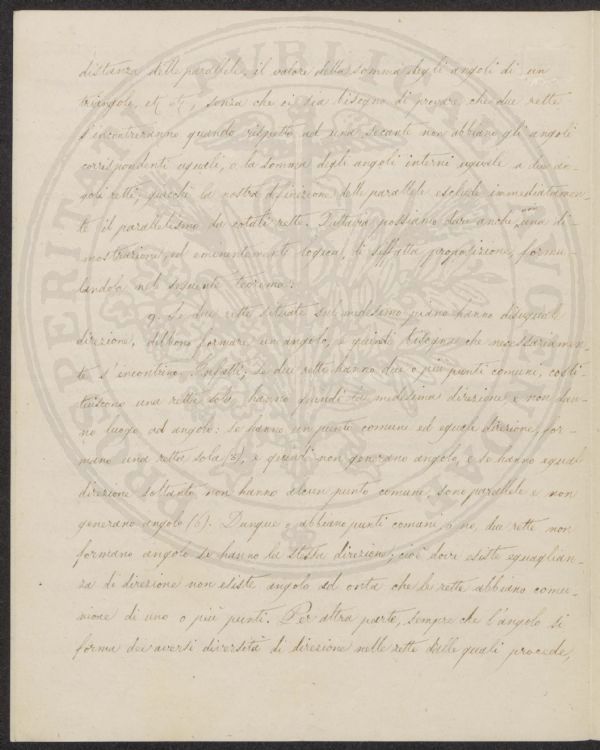 distanza delle parallele, il valore della somma degli angoli di un
triangolo, etc etc, senza che ci sia bisogno di provare, che due rette
s'incontreranno quando rispetto ad una secante non abbiano gli angoli
corrispondenti uguali, o la somma degli angoli interni uguale a due an-
goli retti; giacchè la nostra definizione delle parallele esclude immediatamen-
te il parallelismo da cotali rette. Tuttavia possiamo dare anche una di-
mostrazione, ed eminentemente logica, di siffatta proposizione, formu-
landola nel seguente teorema:
9. Se due rette situate sul medesimo piano hanno disuguale
direzione, debbono formare un angolo, e quindi bisogna che necessariamen-
te s'incontrino. Infatti, se due rette hanno due o più punti comuni, costi-
tuiscono una retta sola, hanno quindi la medesima direzione, e non dan-
no luogo ad angolo: se hanno un punto comune ed eguale direzione, for-
mano una retta sola (3), e quindi non generano angolo, e se hanno egual
direzione soltanto, non hanno alcun punto comune, sono parallele e non
generano angolo (6). Dunque o abbiano punti comuni, o no, due rette non
formano angolo se hanno la stessa direzione; cioè dove esiste eguaglian-
za di direzione non esiste angolo ad onta che le rette abbiano comu-
nione di uno o più punti. Per altra parte, sempre che l'angolo si
forma dee aversi diversità di direzione nelle rette dalle quali procede,
PRO PERITALI PUBLICAE